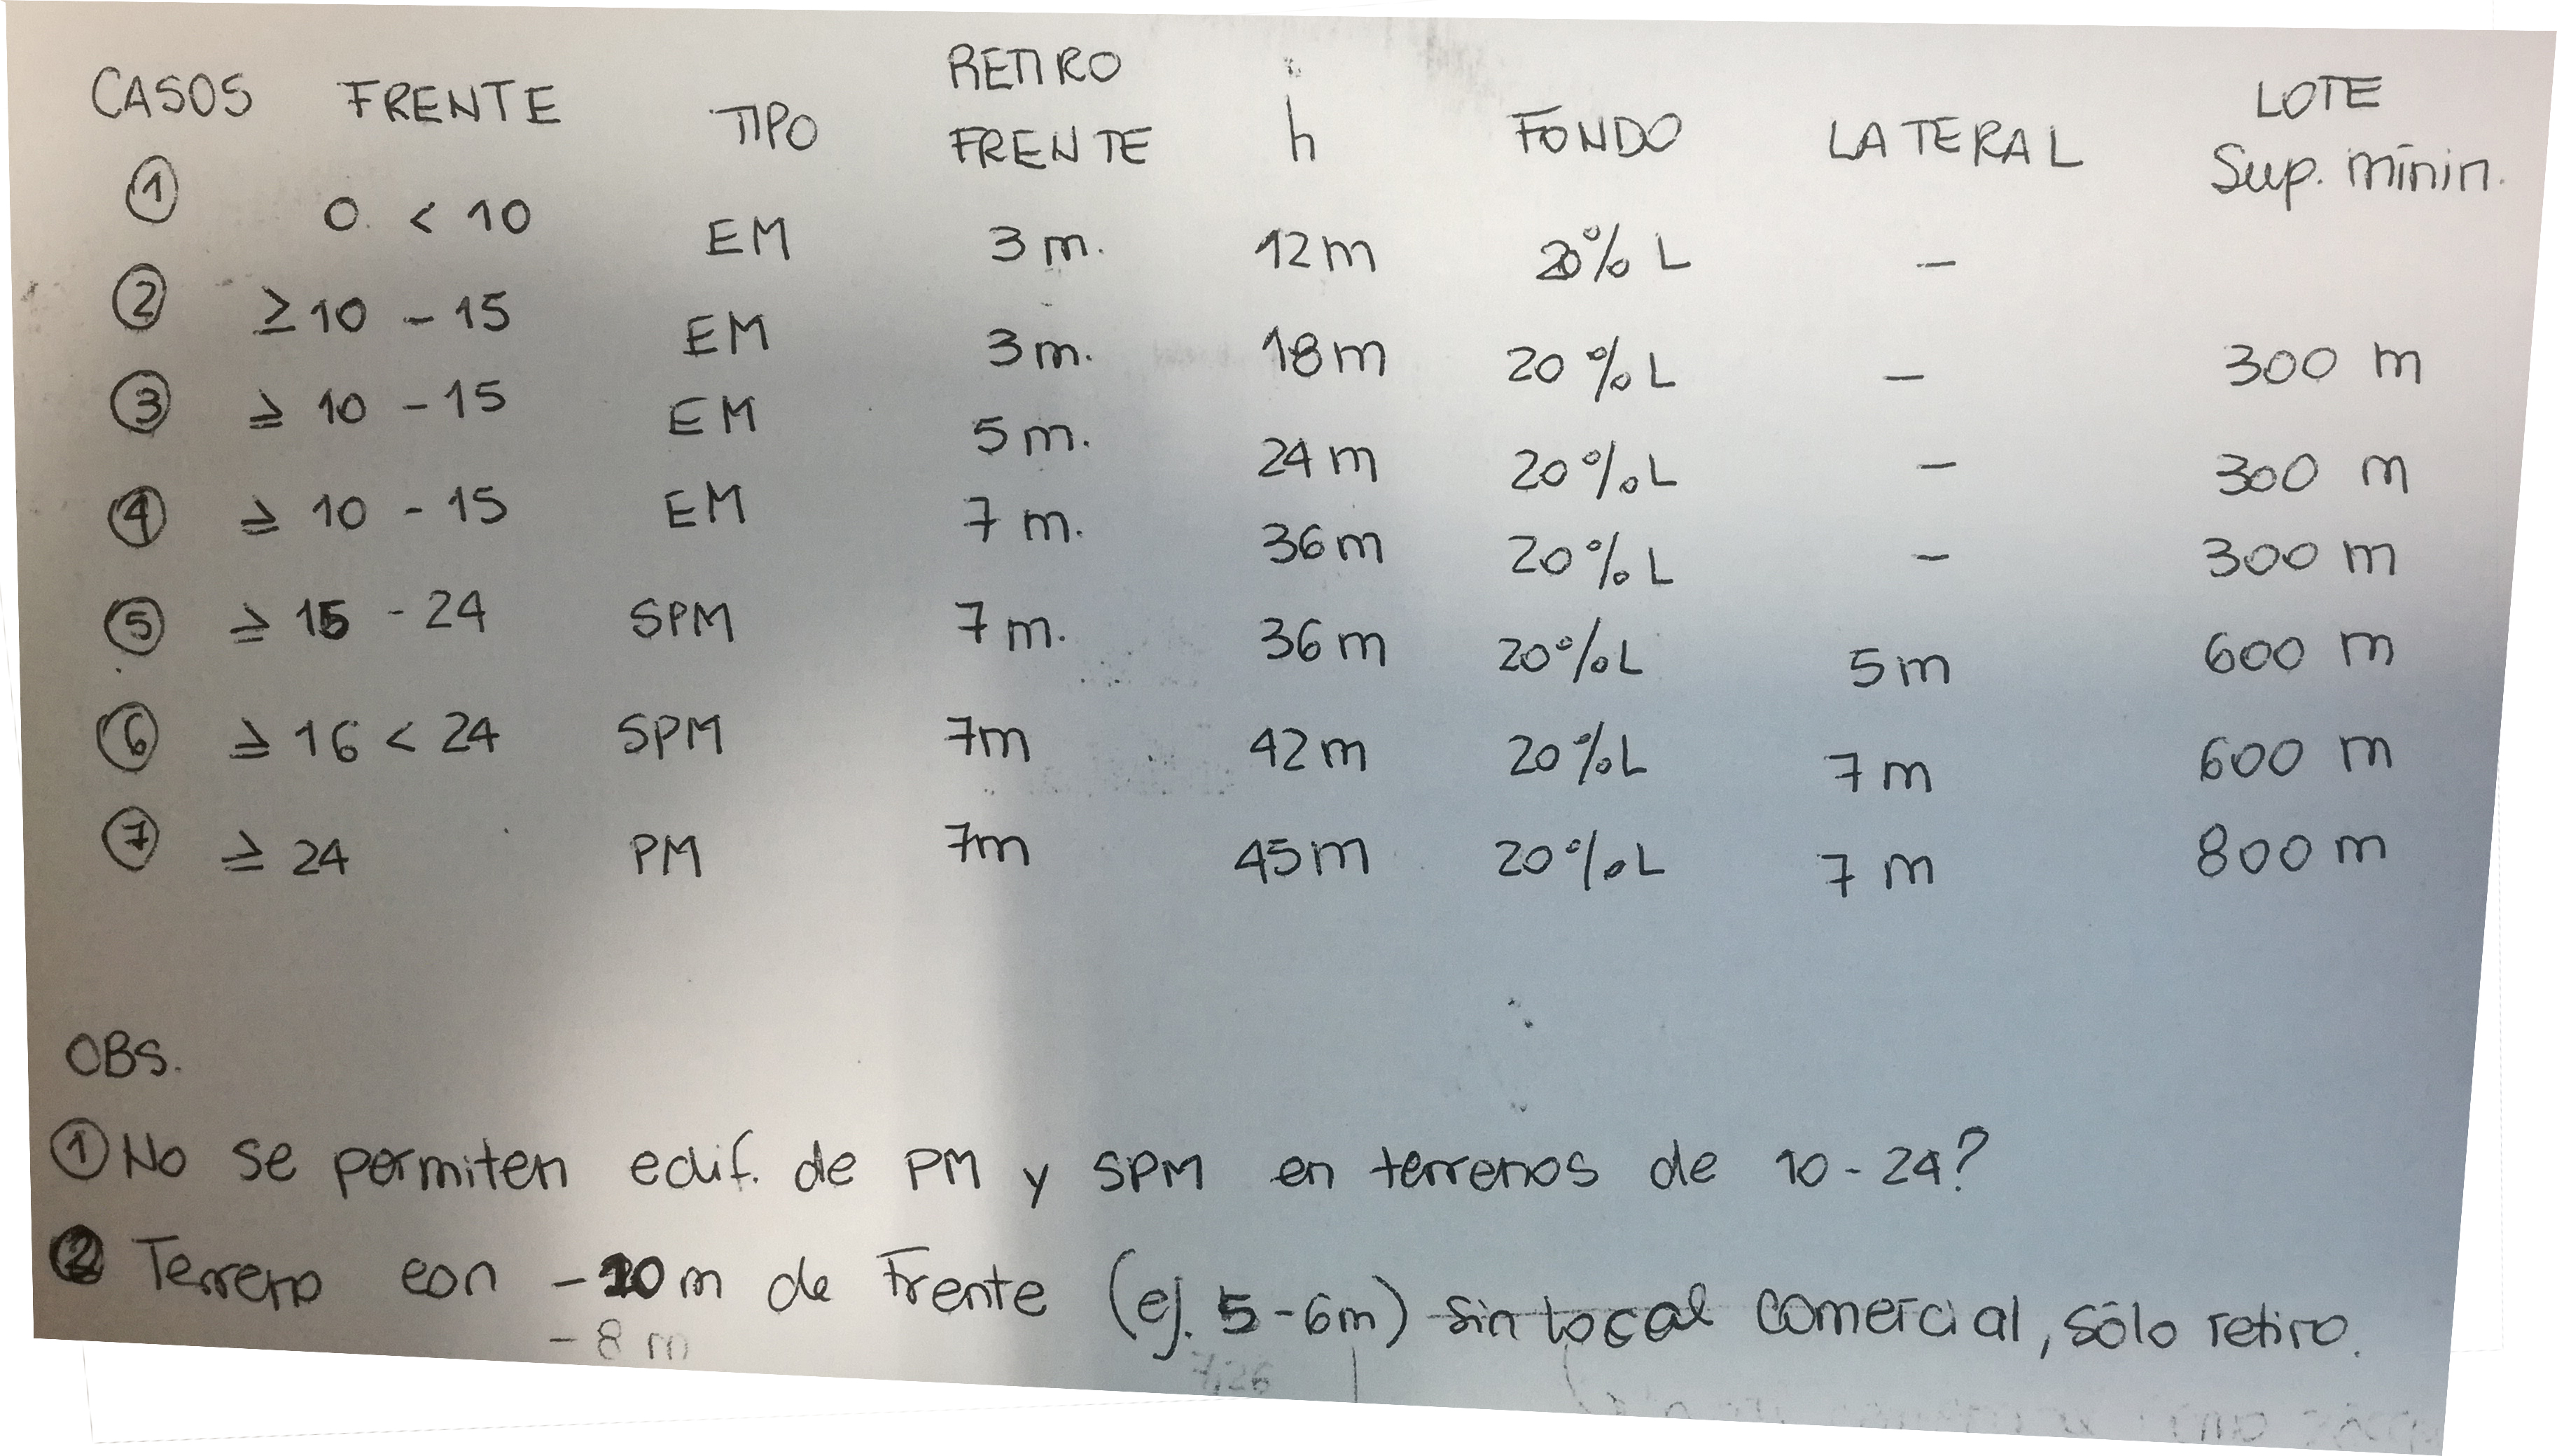 CASOS FRENTE TIPO RETIRO FRENTE h FONDO LATERAL LOTE Sup. mínin.
1 0. < 10 EM 3 m. 12m 20% L -
2 ≥ 10 - 15 EM 3m. 18m 20% L - 300 m
3 ≥ 10 - 15 EM 5 m. 24m 20% L - 300 m
4 ≥ 10 - 15 EM 7 m. 36m 20% L - 300 m
5 ≥ 15 - 24 SPM 7 m. 36m 20% L 5m 600 m
6 ≥ 16 < 24 SPM 7m 42m 20% L 7m 600 m
7 ≥ 24 PM 7m 45m 20% L 7m 800 m
OBS.
1 No se permiten edif. de PM y SPM en terrenos de 10-24?
2 Terreno con -10m de Frente (ej. 5-6m) sin local comercial, sólo retiro.
-8 m